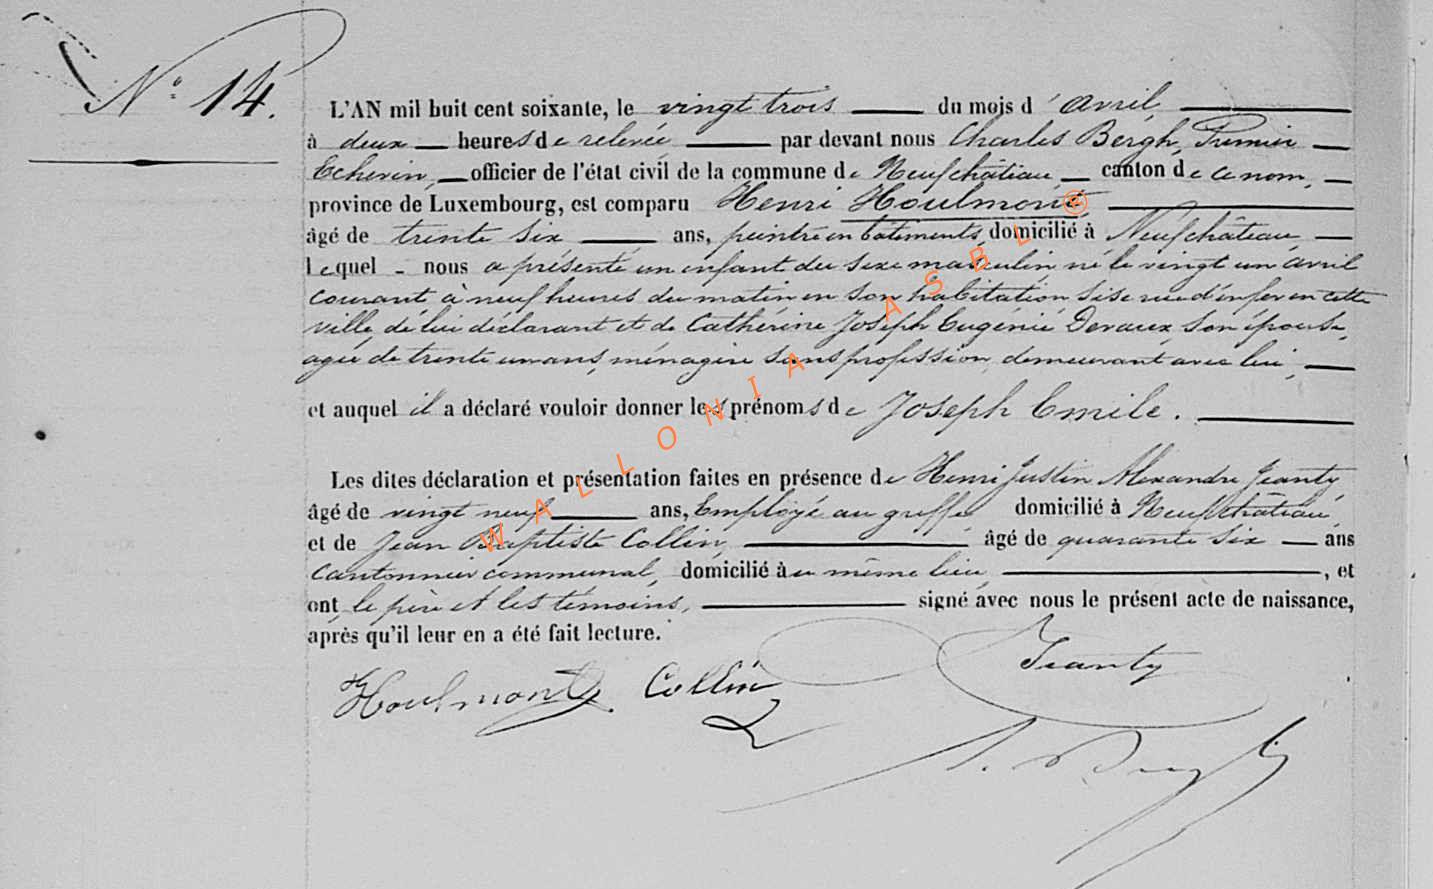 N° 14.
L'AN mil huit cent soixante, le vingt trois du mois d'avril,
à deux heures de relevée par devant nous Charles Bergh, Premier
Echevin, officier de l'état civil de la commune de Neufchâteau canton de ce nom,
province de Luxembourg, est comparu Henri Houlmont
âgé de trente six ans, peintre en bâtiments, domicilié à Neufchâteau
lequel nous a présenté un enfant du sexe masculin né le vingt un avril
courant à neuf heures du matin en son habitation sise rue d'enfer en cette
ville, de lui déclarant et de Cathérine Joseph Eugénie Devaux, son épouse,
agée de trente un ans, ménagère sans profession, demeurant avec lui,
et auquel il a déclaré vouloir donner les prénoms de Joseph Emile.
Les dites déclaration et présentation faites en présence de Henri Justin Alexandre Jeanty
âgé de vingt neuf ans, Employé au greffe domicilié à Neufchâteau,
et de Jean Baptiste Collin, âgé de quarante six ans
cantonnier communal, domicilié au même lieu, , et
ont, le père et les témoins, signé avec nous le présent acte de naissance,
après qu'il leur en a été fait lecture.
Houlmont Collin Jeanty
WALLONIA ASBL ®